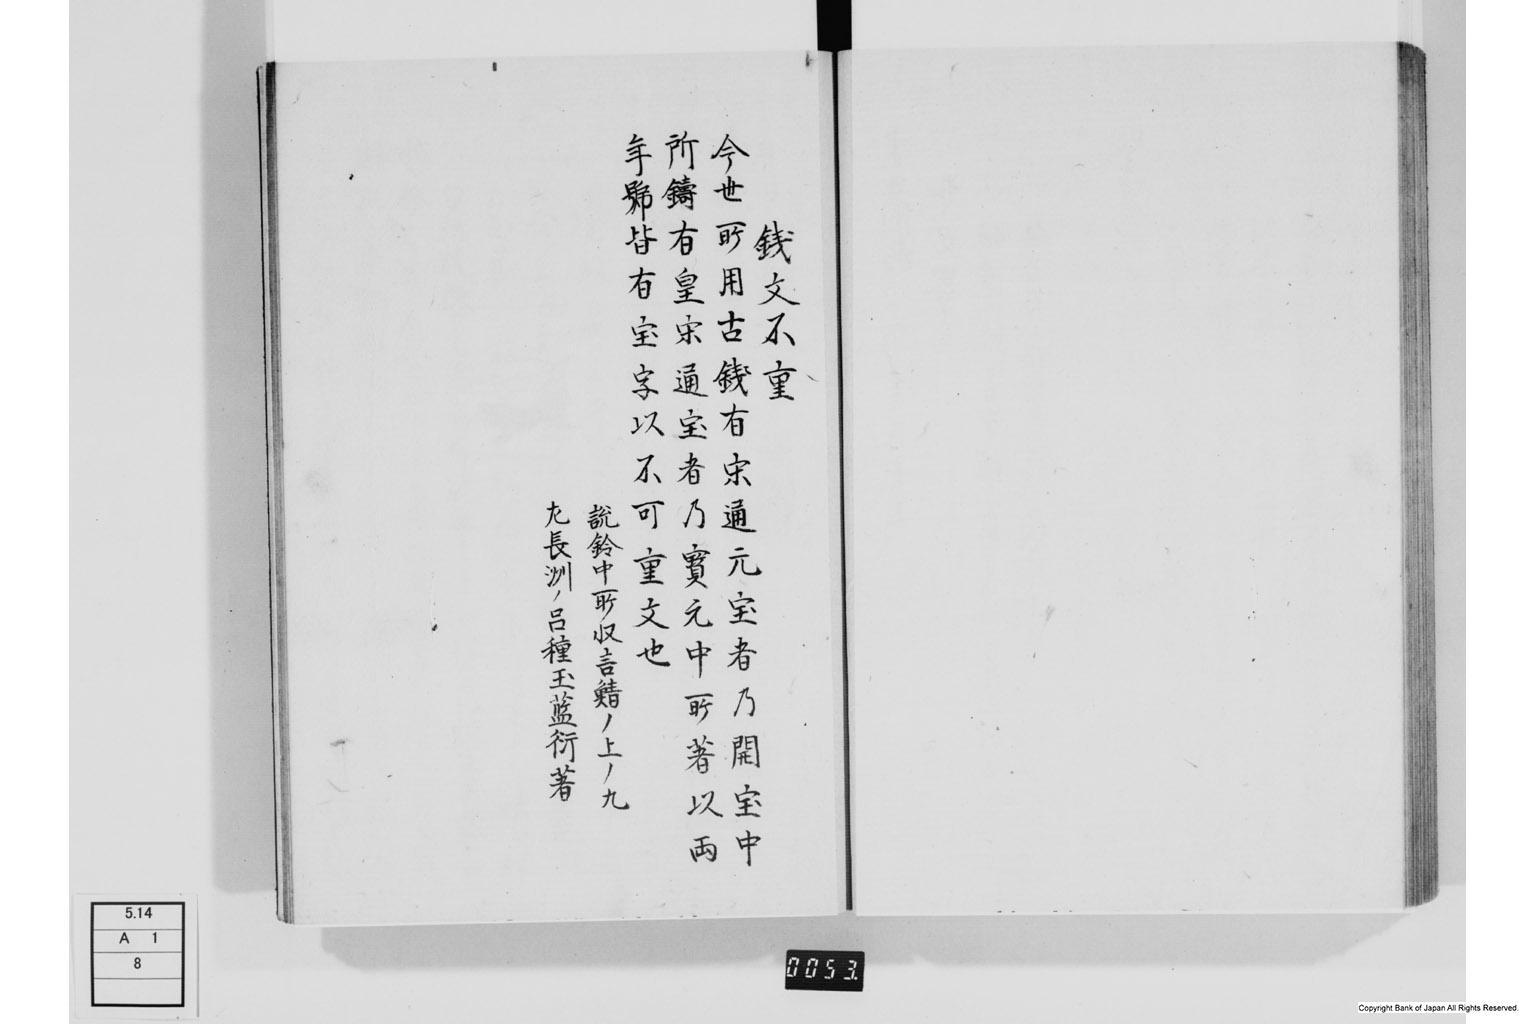 錢文不重
今世所用古錢有宋通元宝者乃開宝中
所鑄有皇宋通宝者乃寳元中所著以両
年號皆有宝字以不可重文也
説鈴中所収言鯖ノ上ノ九
長洲ノ呂種玉藍衍著
0053.
5.14
A 1
8
Copyright Bank of Japan All Rights Reserved.